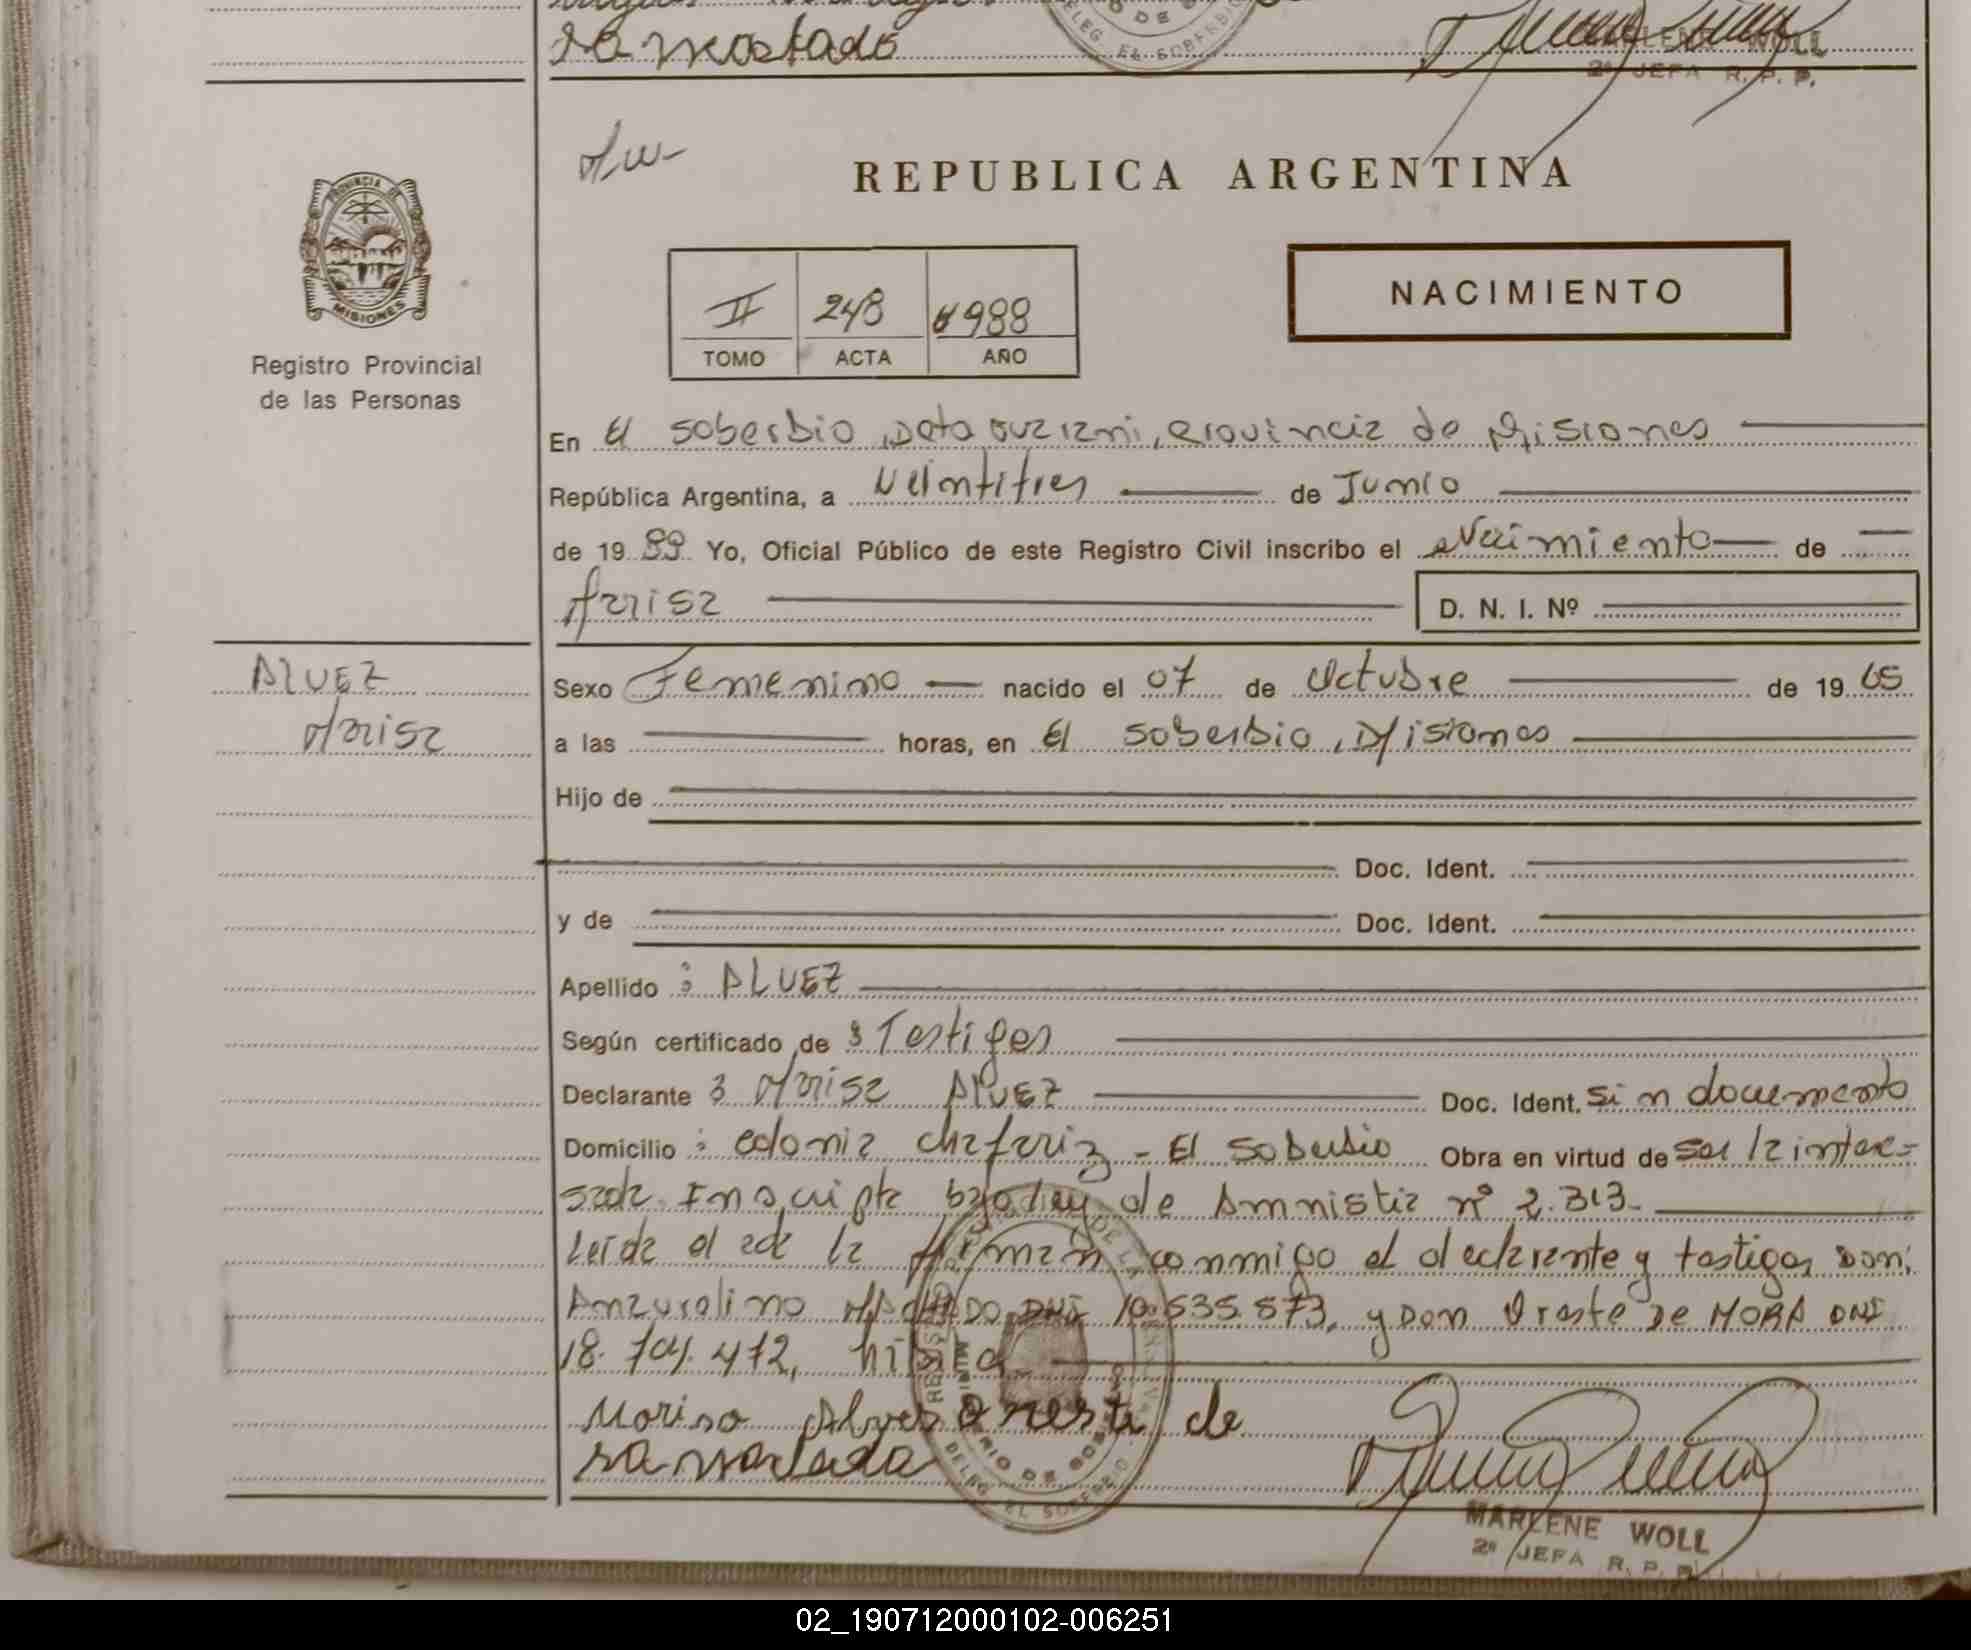 DELEG. EL SOBERBIO
WOLL
2ª JEFA R. P. P.
PROVINCIA DE
MISIONES
Registro Provincial
de las Personas
REPUBLICA ARGENTINA
II 248 1988
TOMO ACTA AÑO
NACIMIENTO
En El Soberbio, Dpto Guarani, Provincia de Misiones
República Argentina, a Veintitres de Junio
de 19 89 Yo, Oficial Público de este Registro Civil inscribo el Nacimiento de
Marisa
D. N. I. Nº
ALVEZ
Marisa
Sexo Femenino nacido el 07 de Octubre de 19 65
a las horas, en El Soberbio, Misiones
Hijo de
Doc. Ident.
y de Doc. Ident.
Apellido : ALVEZ
Según certificado de : Testigos
Declarante : Marisa ALVEZ Doc. Ident. Sin documento
Domicilio : Colonia Chafariz - El Soberbio Obra en virtud de ser la intere-
sada. Inscripta bajo ley de Amnistia nº 2.313.
Leida el acta la firman conmigo el declarante y testigos Don:
MACHADO DNI 10.535.573, y Don Oreste DE MORA DNI
Marisa Alves oreste de
MARLENE WOLL
2ª JEFA R. P. P.
DELEG. EL SOBERBIO
02_190712000102-006251